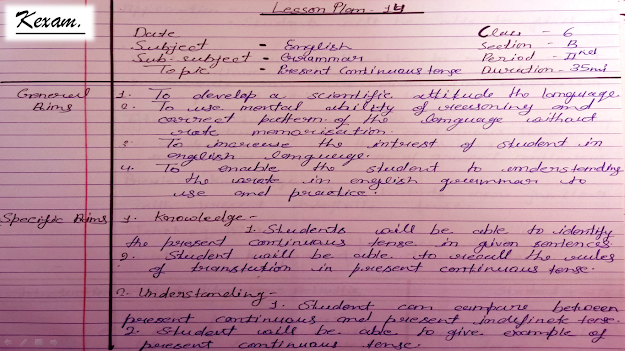 Kexam.
Lesson Plan - 14
Date
Class - 6
Subject - English
Section - B
Sub-subject - Grammar
Period - IInd
Topic - Present Continuous tense
Duration - 35mi
General Aims
1. To develop a scientific attitude the language.
2. To use mental ability of reasoning and
correct pattern of the language without
rote memorisation.
3. To increase the interest of student in
english language.
4. To enable the student to understanding
the in english grammar to
use and practice.
Specific Aims
1. Knowledge -
1. Students will be able to identify
the present continuous tense in given sentences
2. Student will be able to recall the rules
of translation in present continuous tense.
2. Understanding -
1. Student can compare between
present continuous and present indefinite tense.
2. Student will be able to give example of
present continuous tense.